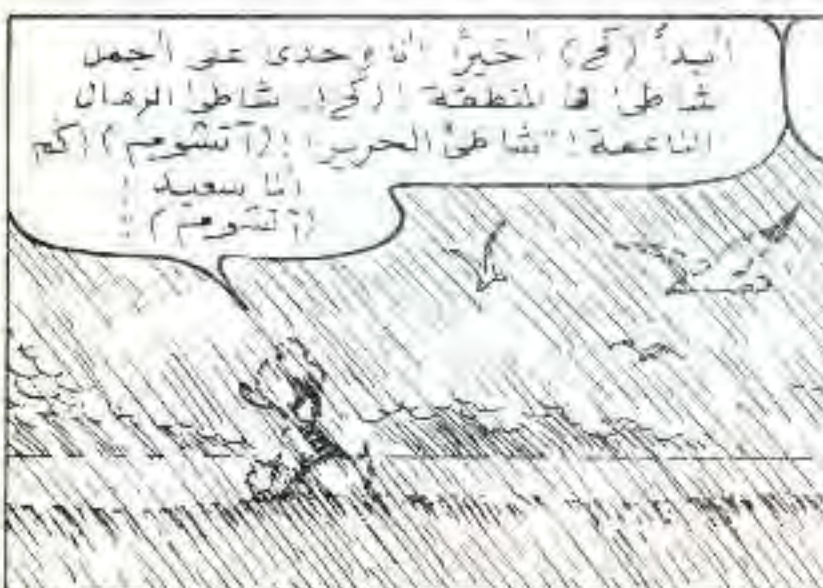 أبدأ (كح) أخيرًا أنا وحدى على أجمل
شاطئ فى المنطقة! (كح)! شاطئ الرمال
الناعمة! "شاطئ الحرير"! (آتشوم)! كم
أنا سعيد!
(آتشوم)!!